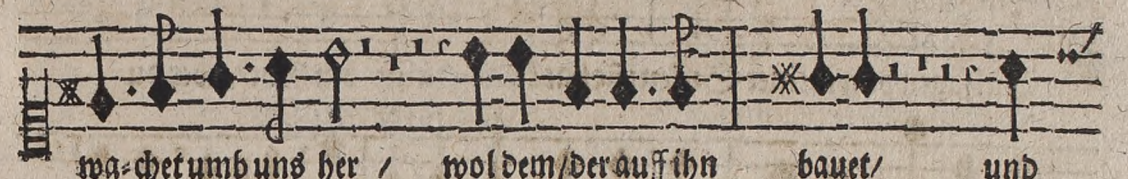 wa-chet umb uns her / wol dem/der auff ihn bauet/ und